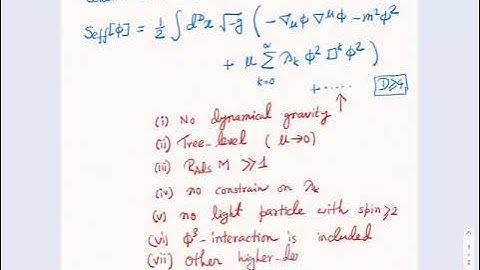 S_eff[φ] = 1/2 ∫ d^D x √-g ( - ∇_μ φ ∇^μ φ - m²φ²
+ μ ∑_{k=0}^{∞} λ_k φ² □^k φ² )
+ ..... D≥4,
(i) No dynamical gravity
(ii) Tree-level (μ→0)
(iii) R_AdS M >> 1
(iv) no constrain on λ_k
(v) no light particle with spin≥2
(vi) φ³-interaction is included
(vii) Other higher-de